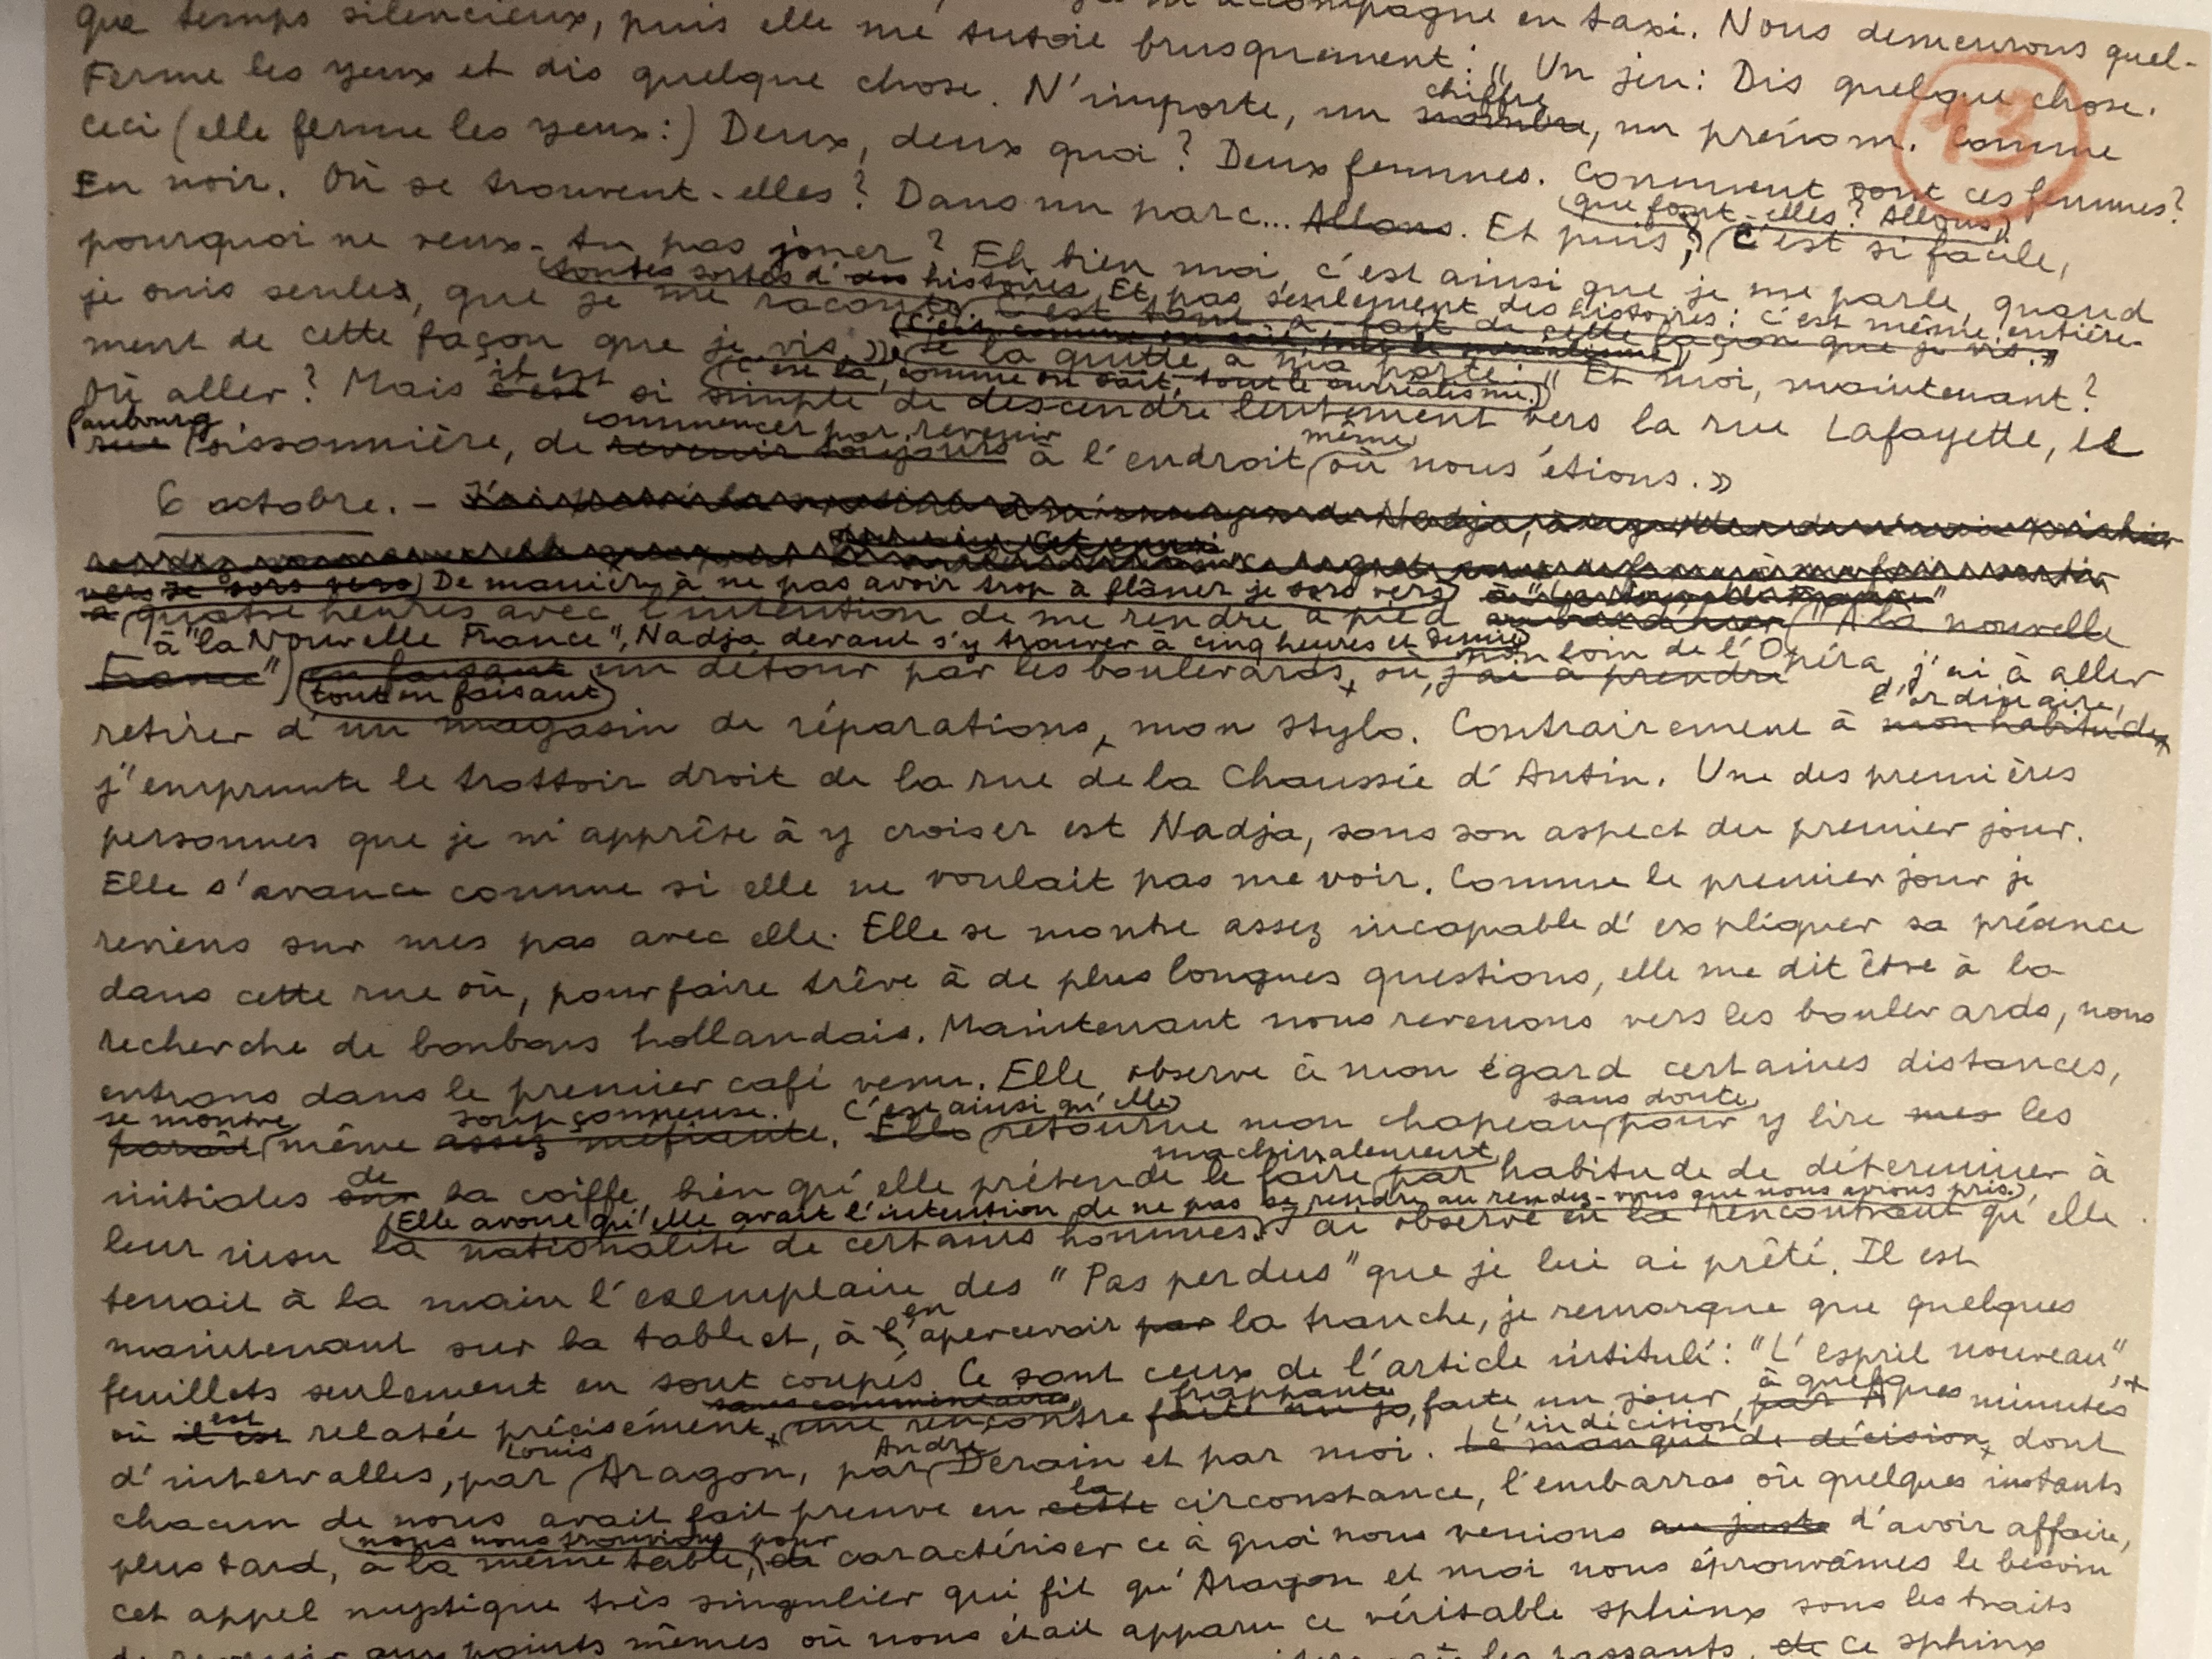 m'accompagne en taxi. Nous demeurons quel-
que temps silencieux, puis elle me tutoie brusquement : „ Un jeu : Dis quelque chose.
Ferme les yeux et dis quelque chose. N'importe, un nombre, un prénom. Comme
chiffre
13
ceci (elle ferme les yeux :) Deux, deux quoi ? Deux femmes. Comment sont ces femmes ?
En noir. Où se trouvent-elles ? Dans un parc... Allons. Et puis, c'est si facile,
que font-elles ? Allons,
pourquoi ne veux-tu pas jouer ? Eh bien moi, c'est ainsi que je me parle quand
toutes sortes d' des histoires. Et pas seulement des histoires : c'est même entière-
je suis seule, que je me raconte C'est tout à fait de cette façon que je vis. "
(C'est, comme on sait, tout le surréalisme)
ment de cette façon que je vis. » Je la quitte à ma porte : „ Et moi, maintenant ?
(C'est là, comme on sait, tout le surréalisme.)
Où aller ? Mais c'est si simple de descendre lentement vers la rue Lafayette, le
il est
faubourg
commencer par revenir
rue Poissonnière, de revenir toujours à l'endroit où nous étions. »
même
6 octobre. – Nadja,
vers Je sors vers De manière à ne pas avoir trop à flâner je sors vers
à quatre heures avec l'intention de me rendre à pied "A la nouvelle
à "la Nouvelle France", Nadja devant s'y trouver à cinq heures et demie
France" en faisant un détour par les boulevards, où, j'ai à prendre j'ai à aller
non loin de l'Opéra,
tout en faisant
retirer d'un magasin de réparations, mon stylo. Contrairement à mon habitude,
d'ordinaire,
j'emprunte le trottoir droit de la rue de la Chaussée d'Antin. Une des premières
personnes que je m'apprête à y croiser est Nadja, sous son aspect du premier jour.
Elle s'avance comme si elle ne voulait pas me voir. Comme le premier jour je
reviens sur mes pas avec elle. Elle se montre assez incapable d'expliquer sa présence
dans cette rue où, pour faire trêve à de plus longues questions, elle me dit être à la
recherche de bonbons hollandais. Maintenant nous revenons vers les boulevards, nous
entrons dans le premier café venu. Elle observe à mon égard certaines distances,
se montre soupçonneuse. C'est ainsi qu'elle sans doute
paraît même assez méfiante. Elle retourne mon chapeau pour y lire mes les
machinalement
initiales sur la coiffe, bien qu'elle prétende le faire par habitude de déterminer à
de
Elle avoue qu'elle avait l'intention de ne pas se rendre au rendez-vous que nous avions pris.
leur insu la nationalité de certains hommes. J'ai observé en la rencontrant qu'elle
tenait à la main l'exemplaire des "Pas perdus" que je lui ai prêté. Il est
maintenant sur la table et, à l' apercevoir par la tranche, je remarque que quelques
en
feuillets seulement en sont coupés Ce sont ceux de l'article intitulé : "L'esprit nouveau",
est sans commentaires, frappante à quelques
où il est relatée précisément, une rencontre faite un jo, faite un jour, par A minutes
Louis André L'indécision
d'intervalles, par Aragon, par Derain et par moi. Le manque de décision, dont
chacun de nous avait fait preuve en cette circonstance, l'embarras où quelques instants
la
nous nous trouvions pour
plus tard, à la même table, de caractériser ce à quoi nous venions au juste d'avoir affaire,
cet appel mystique très singulier qui fit qu'Aragon et moi nous éprouvâmes le besoin
de revenir aux points mêmes où nous était apparu ce véritable sphinx sous les traits
les passants, de ce sphinx